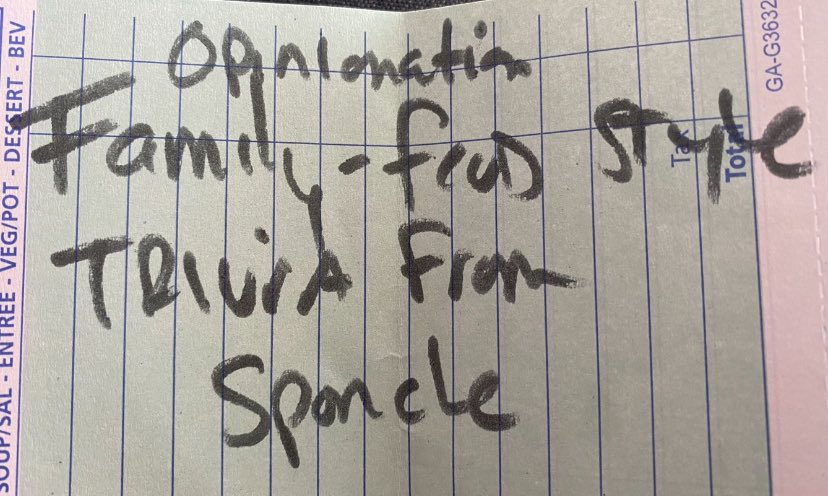 Opinionation
Family-feud Style
TRIVIA From
Sporcle
SOUP/SAL - ENTREE - VEG/POT - DESSERT - BEV
Tax
Total
GA-G3632